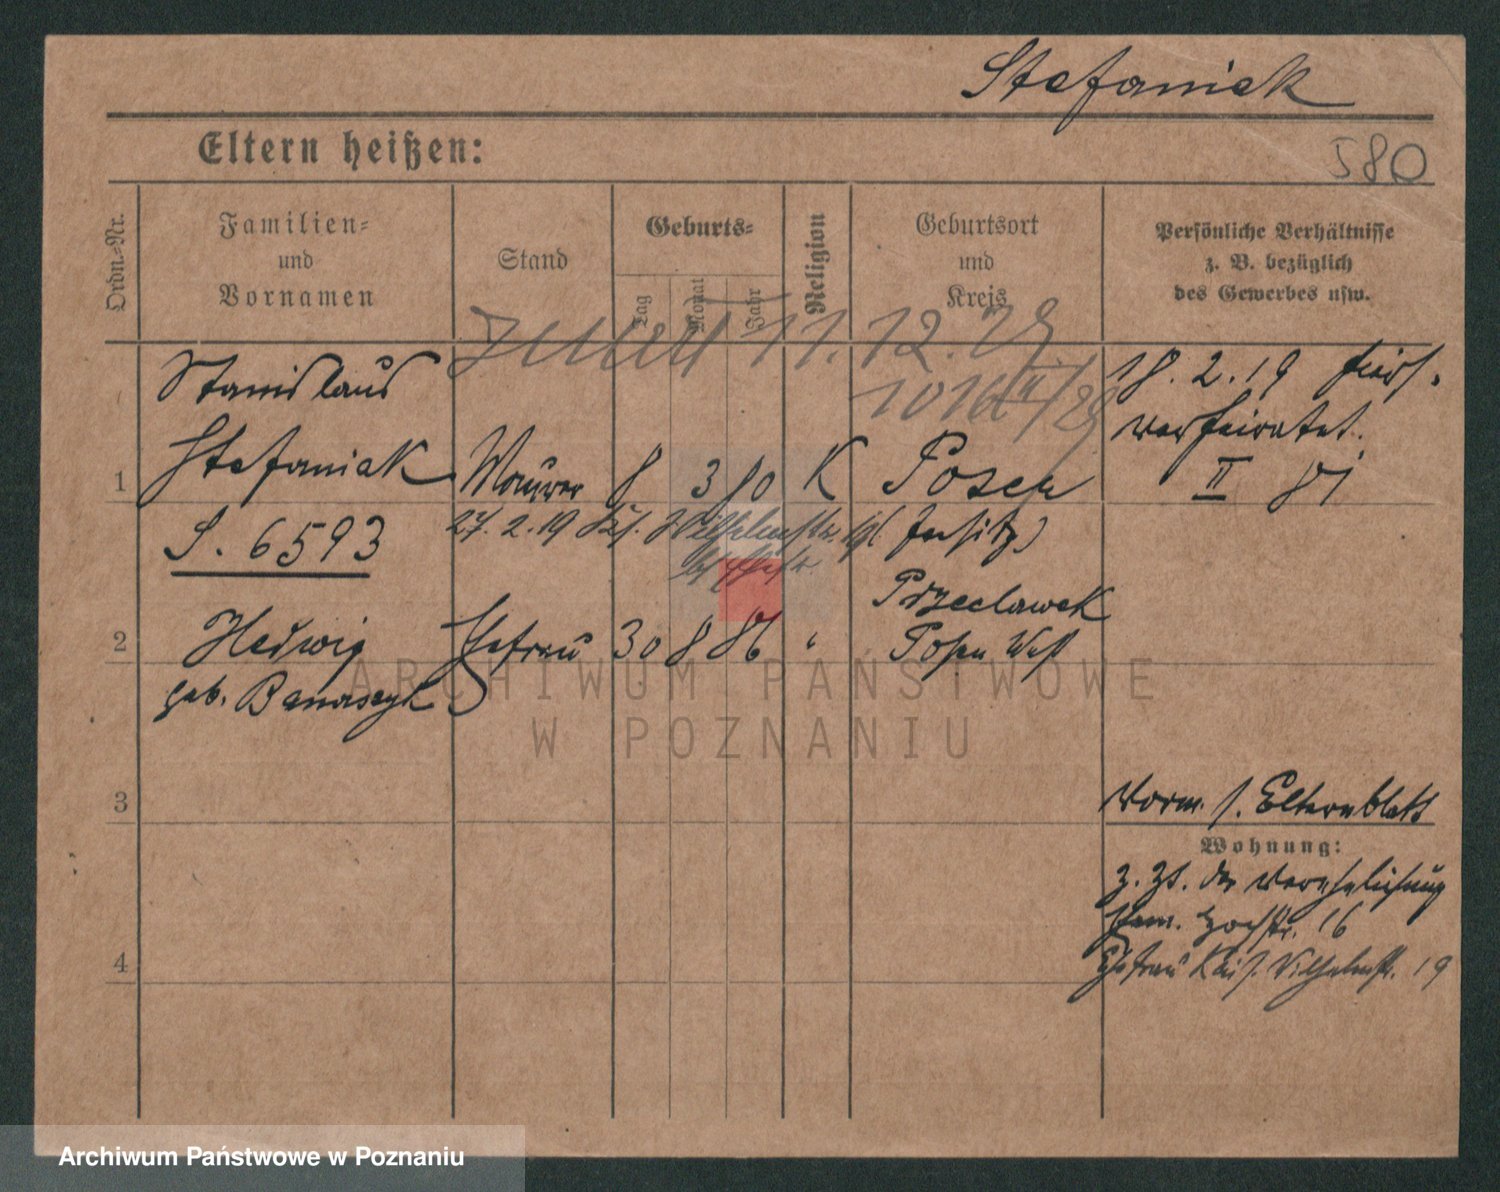 Stefaniak
580
Eltern heißen:
Ordn.-Nr.
Familien-
und
Vornamen
Stand
Geburts-
Tag
Monat
Jahr
Religion
Geburtsort
und
Kreis
Persönliche Verhältnisse
z. B. bezüglich
des Gewerbes usw.
11. 12. 29
Stanislaus
18. 2. 19 hier
verheiratet.
1 Stefaniak Maurer 8 3 80 K Posen
II 81
S. 6593
27. 2. 19 Wilhelmstr. 19
(Jersitz)
Przeclawek
2 Hedwig Ehefrau 30 8 86 " Posen West
geb. Banaszyk
ARCHIWUM PAŃSTWOWE
W POZNANIU
3
Vorm. s. Elternblatt
Wohnung:
z. Zt. der Verehelichung
Ehem. Hochstr. 16
4
Ehefrau Kais. Wilhelmstr. 19
Archiwum Państwowe w Poznaniu